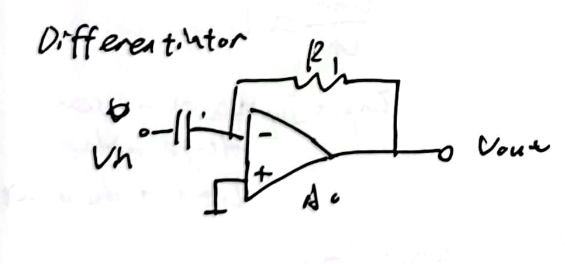 Differentiator
R1
-
Vin
+
Vout
A0